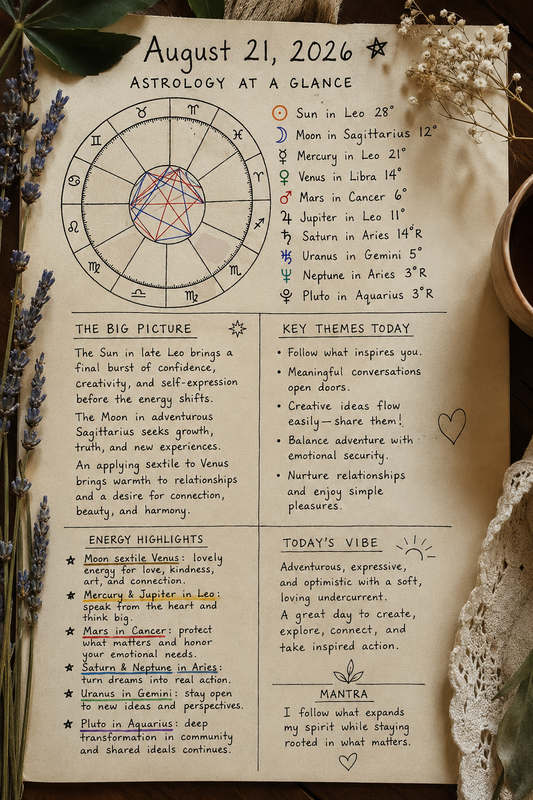 August 21, 2026
ASTROLOGY AT A GLANCE
Sun in Leo 28°
Moon in Sagittarius 12°
Mercury in Leo 21°
Venus in Libra 14°
Mars in Cancer 6°
Jupiter in Leo 11°
Saturn in Aries 14°R
Uranus in Gemini 5°
Neptune in Aries 3°R
Pluto in Aquarius 3°R
THE BIG PICTURE
The Sun in late Leo brings a
final burst of confidence,
creativity, and self-expression
before the energy shifts.
The Moon in adventurous
Sagittarius seeks growth,
truth, and new experiences.
An applying sextile to Venus
brings warmth to relationships
and a desire for connection,
beauty, and harmony.
KEY THEMES TODAY
• Follow what inspires you.
• Meaningful conversations
open doors.
• Creative ideas flow
easily—share them!
• Balance adventure with
emotional security.
• Nurture relationships
and enjoy simple
pleasures.
ENERGY HIGHLIGHTS
Moon sextile Venus: lovely
energy for love, kindness,
art, and connection.
Mercury & Jupiter in Leo:
speak from the heart and
think big.
Mars in Cancer: protect
what matters and honor
your emotional needs.
Saturn & Neptune in Aries:
turn dreams into real action.
Uranus in Gemini: stay open
to new ideas and perspectives.
Pluto in Aquarius: deep
transformation in community
and shared ideals continues.
TODAY'S VIBE
Adventurous, expressive,
and optimistic with a soft,
loving undercurrent.
A great day to create,
explore, connect, and
take inspired action.
MANTRA
I follow what expands
my spirit while staying
rooted in what matters.